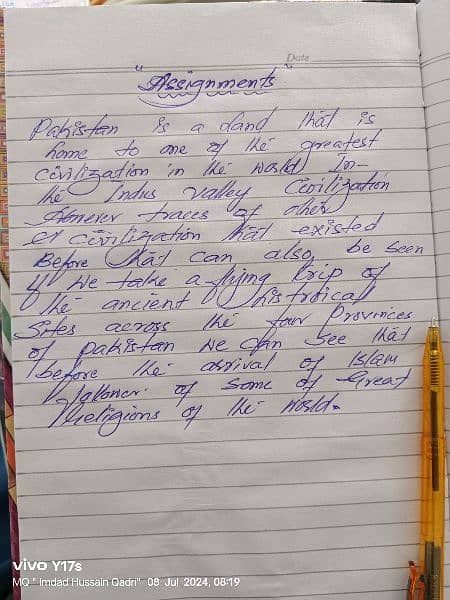 Date
"Assignments"
Pakistan is a land that is
home to one of the greatest
civilization in the world In-
the Indus valley Civilization
However traces of other
civilization that existed
Before that can also be seen
if we take a flying trip of
the ancient histroical
Sites across the four Provinces
of pakistan we can see that
before the arrival of Islam
of some of Great
Religions of the world.
vivo Y17s
MQ " Imdad Hussain Qadri" 08 Jul 2024, 08:19